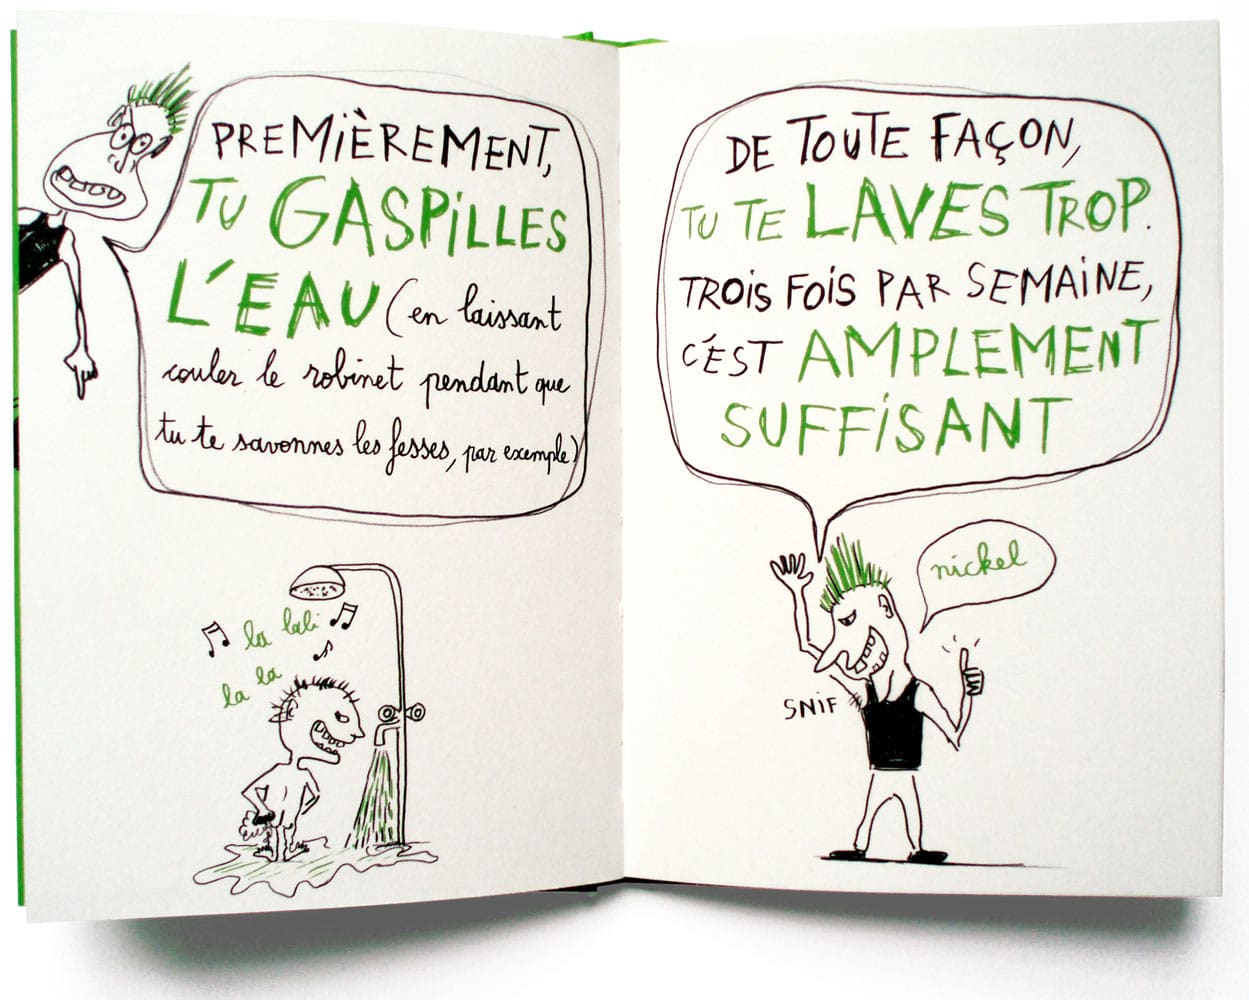 PREMIÈREMENT,
TU GASPILLES
L'EAU (en laissant
couler le robinet pendant que
tu te savonnes les fesses, par exemple)
la lali
la la
DE TOUTE FAÇON,
TU TE LAVES TROP.
TROIS FOIS PAR SEMAINE,
C'EST AMPLEMENT
SUFFISANT
nickel
SNIF